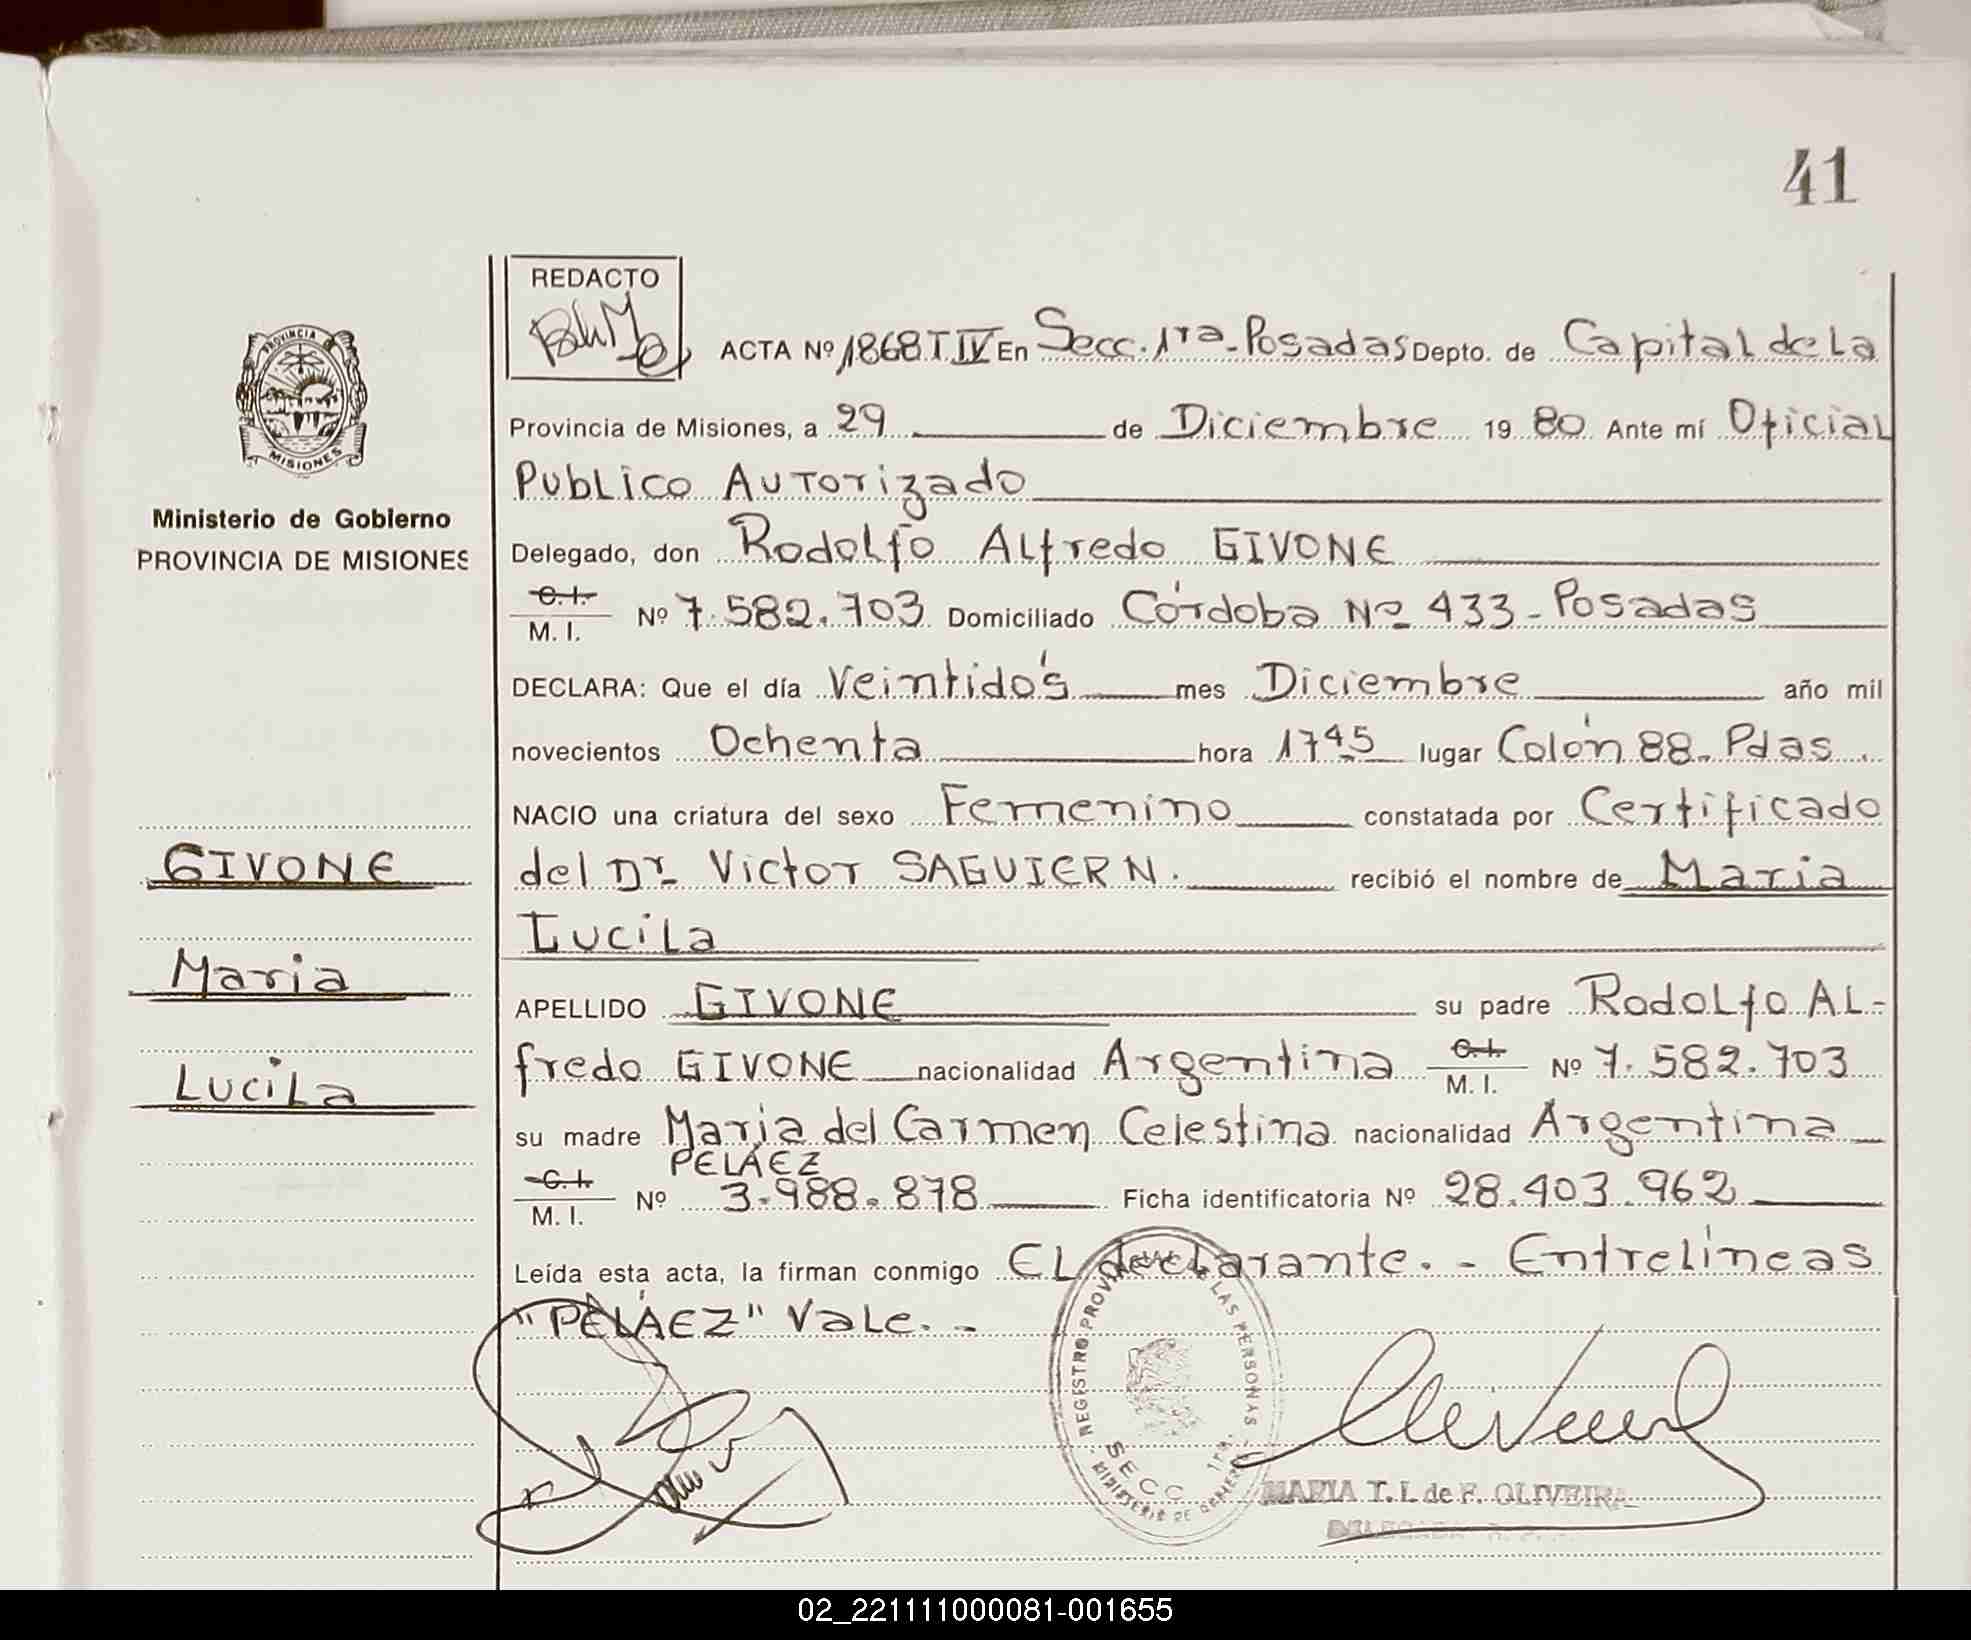 41
REDACTO
ACTA Nº 1868 T IV En Secc. 1ra. Posadas Depto. de Capital de La
Provincia de Misiones, a 29 de Diciembre 19 80 Ante mí Oficial
Publico Autorizado
Delegado, don Rodolfo Alfredo GIVONE
C.I.
M. I. Nº 7.582.703 Domiciliado Córdoba Nº 433 - Posadas
DECLARA: Que el día Veintidós mes Diciembre año mil
novecientos Ochenta hora 1745 lugar Colón 88. Pdas.
NACIO una criatura del sexo Femenino constatada por Certificado
del Dr. Victor SAGUIERN. recibió el nombre de Maria
Lucila
APELLIDO GIVONE su padre Rodolfo AL-
fredo GIVONE nacionalidad Argentina C.I. M. I. Nº 7.582.703
su madre Maria del Carmen Celestina nacionalidad Argentina
PELÁEZ
C.I.
M. I. Nº 3.988.878 Ficha identificatoria Nº 28.403.962
Leída esta acta, la firman conmigo EL declarante. - Entrelíneas
"PELÁEZ" Vale. -
PROVINCIA DE
MISIONES
Ministerio de Gobierno
PROVINCIA DE MISIONES
GIVONE
Maria
Lucila
REGISTRO PROVINCIAL DE LAS PERSONAS
SECC 1ra.
MINISTERIO DE GOBIERNO
MARIA T. I. de F. OLIVEIRA
DELEGADA
02_221111000081-001655